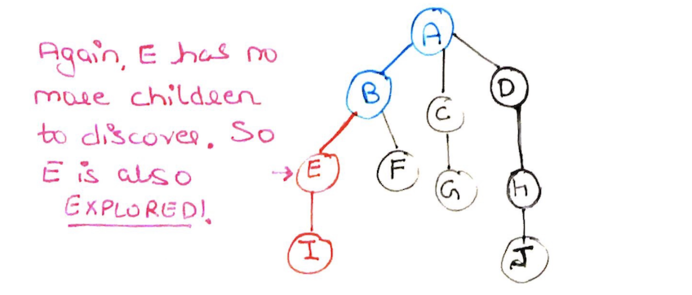 Again, E has no
more children
to discover. So
E is also
EXPLORED!
A
B
C
D
E
F
G
H
I
J